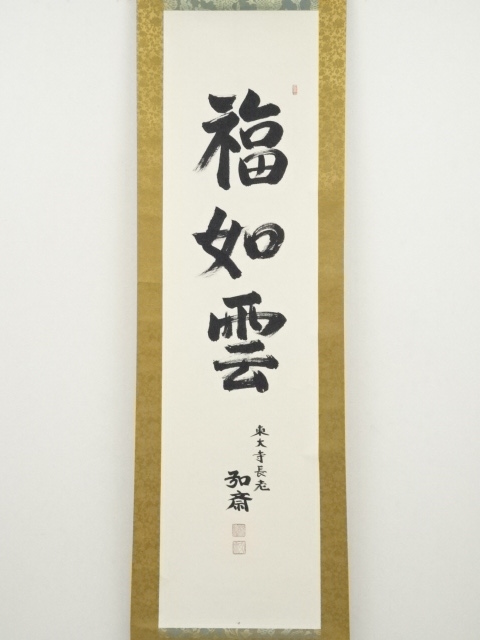 福如雲
東大寺長老
弘斎